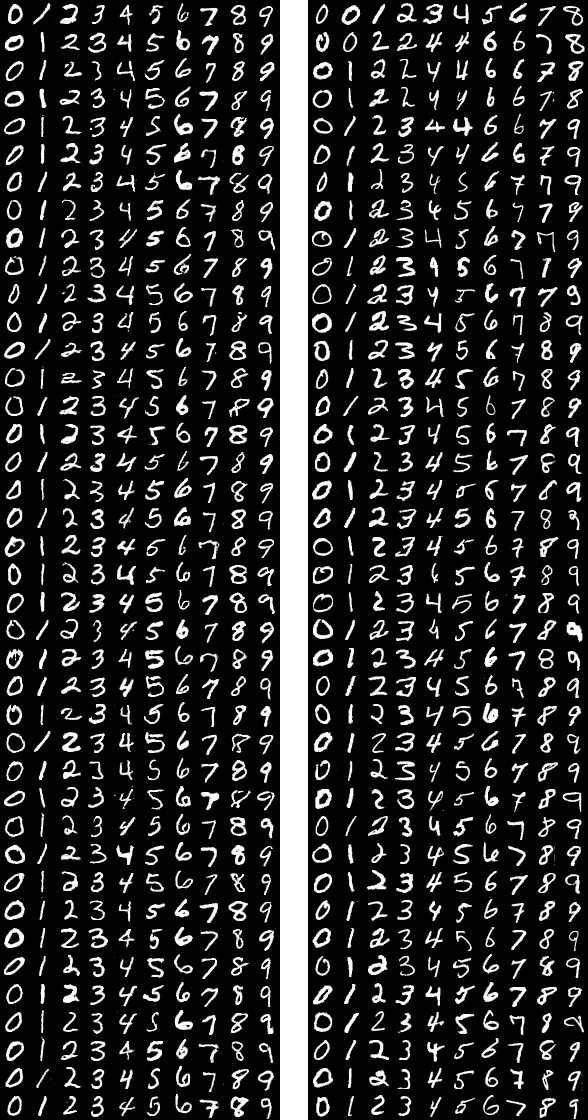 0 1 2 3 4 5 6 7 8 9
0 1 2 3 4 5 6 7 8 9
0 1 2 3 4 5 6 7 8 9
0 1 2 3 4 5 6 7 8 9
0 1 2 3 4 5 6 7 8 9
0 1 2 3 4 5 6 7 8 9
0 1 2 3 4 5 6 7 8 9
0 1 2 3 4 5 6 7 8 9
0 1 2 3 4 5 6 7 8 9
0 1 2 3 4 5 6 7 8 9
0 1 2 3 4 5 6 7 8 9
0 1 2 3 4 5 6 7 8 9
0 1 2 3 4 5 6 7 8 9
0 1 2 3 4 5 6 7 8 9
0 1 2 3 4 5 6 7 8 9
0 1 2 3 4 5 6 7 8 9
0 1 2 3 4 5 6 7 8 9
0 1 2 3 4 5 6 7 8 9
0 1 2 3 4 5 6 7 8 9
0 1 2 3 4 5 6 7 8 9
0 1 2 3 4 5 6 7 8 9
0 1 2 3 4 5 6 7 8 9
0 1 2 3 4 5 6 7 8 9
0 1 2 3 4 5 6 7 8 9
0 1 2 3 4 5 6 7 8 9
0 1 2 3 4 5 6 7 8 9
0 1 2 3 4 5 6 7 8 9
0 1 2 3 4 5 6 7 8 9
0 1 2 3 4 5 6 7 8 9
0 1 2 3 4 5 6 7 8 9
0 1 2 3 4 5 6 7 8 9
0 1 2 3 4 5 6 7 8 9
0 1 2 3 4 5 6 7 8 9
0 1 2 3 4 5 6 7 8 9
0 1 2 3 4 5 6 7 8 9
0 1 2 3 4 5 6 7 8 9
0 1 2 3 4 5 6 7 8 9
0 1 2 3 4 5 6 7 8 9
0 1 2 3 4 5 6 7 8 9
0 1 2 3 4 5 6 7 8 9
0 0 1 2 3 4 5 6 7 8
0 0 2 2 4 4 6 6 7 8
0 1 2 2 4 4 6 6 7 8
0 1 2 2 4 4 6 6 7 8
0 1 2 3 4 4 6 6 7 9
0 1 2 3 4 4 6 6 7 9
0 1 2 3 4 5 6 7 7 9
0 1 2 3 4 5 6 7 7 9
0 1 2 3 4 5 6 7 7 9
0 1 2 3 4 5 6 7 7 9
0 1 2 3 4 5 6 7 7 9
0 1 2 3 4 5 6 7 8 9
0 1 2 3 4 5 6 7 8 9
0 1 2 3 4 5 6 7 8 9
0 1 2 3 4 5 6 7 8 9
0 1 2 3 4 5 6 7 8 9
0 1 2 3 4 5 6 7 8 9
0 1 2 3 4 5 6 7 8 9
0 1 2 3 4 5 6 7 8 9
0 1 2 3 4 5 6 7 8 9
0 1 2 3 4 5 6 7 8 9
0 1 2 3 4 5 6 7 8 9
0 1 2 3 4 5 6 7 8 9
0 1 2 3 4 5 6 7 8 9
0 1 2 3 4 5 6 7 8 9
0 1 2 3 4 5 6 7 8 9
0 1 2 3 4 5 6 7 8 9
0 1 2 3 4 5 6 7 8 9
0 1 2 3 4 5 6 7 8 9
0 1 2 3 4 5 6 7 8 9
0 1 2 3 4 5 6 7 8 9
0 1 2 3 4 5 6 7 8 9
0 1 2 3 4 5 6 7 8 9
0 1 2 3 4 5 6 7 8 9
0 1 2 3 4 5 6 7 8 9
0 1 2 3 4 5 6 7 8 9
0 1 2 3 4 5 6 7 8 9
0 1 2 3 4 5 6 7 8 9
0 1 2 3 4 5 6 7 8 9
0 1 2 3 4 5 6 7 8 9